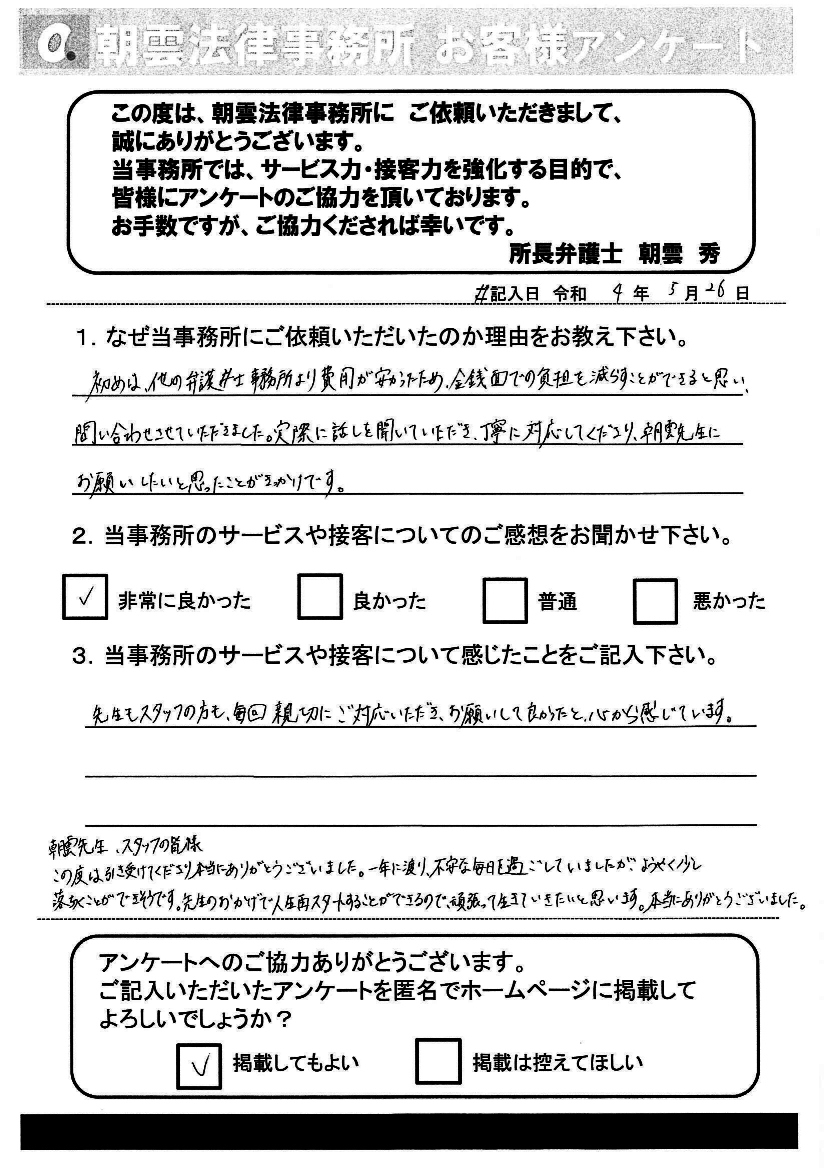 朝雲法律事務所 お客様アンケート
この度は、朝雲法律事務所に ご依頼いただきまして、
誠にありがとうございます。
当事務所では、サービス力・接客力を強化する目的で、
皆様にアンケートのご協力を頂いております。
お手数ですが、ご協力くだされば幸いです。
所長弁護士 朝雲 秀
#記入日 令和 4 年 5 月 26 日
1．なぜ当事務所にご依頼いただいたのか理由をお教え下さい。
初めは、他の弁護士事務所より費用が安かったため、金銭面での負担を減らすことができると思い、
問い合わせさせていただきました。実際に話しを聞いていただき、丁寧に対応してくださり、朝雲先生に
お願いしたいと思ったことがきっかけです。
2．当事務所のサービスや接客についてのご感想をお聞かせ下さい。
✓ 非常に良かった 良かった 普通 悪かった
3．当事務所のサービスや接客について感じたことをご記入下さい。
先生もスタッフの方も、毎回親切にご対応いただき、お願いして良かったと、心から感じています。
朝雲先生、スタッフの皆様
この度は引き受けてくださり本当にありがとうございました。一年に渡り、不安な毎日を過ごしていましたが、ようやく少し
落ちつくことができそうです。先生のおかげで人生再スタートすることができるので、頑張って生きていきたいと思います。本当にありがとうございました。
アンケートへのご協力ありがとうございます。
ご記入いただいたアンケートを匿名でホームページに掲載して
よろしいでしょうか？
✓ 掲載してもよい 掲載は控えてほしい